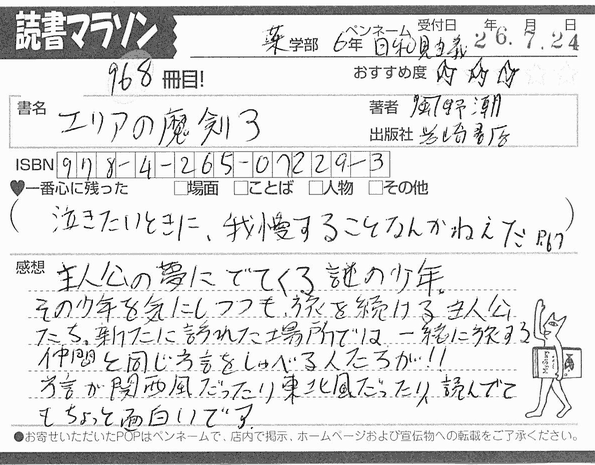 読書マラソン
968冊目!
薬学部 6年 ペンネーム 日和見主義
受付日 26年7月24日
おすすめ度 ☆☆☆
書名 エリアの魔剣3
著者 風野潮
出版社 岩崎書店
ISBN 978-4-265-07229-3
♥一番心に残った □場面 □ことば □人物 □その他
(泣きたいときに、我慢することなんかねえだ P.67)
感想 主人公の夢にでてくる謎の少年。
その少年を気にしつつも、旅を続ける主人公
たち。新たに訪れた場所では、一緒に旅する
仲間と同じ方言をしゃべる人たちが!!
方言が関西風だったり東北風だったり、読んでて
もちょっと面白いです。
●お寄せいただいたPOPはペンネームで、店内で掲示、ホームページおよび宣伝物への転載をご了承ください。